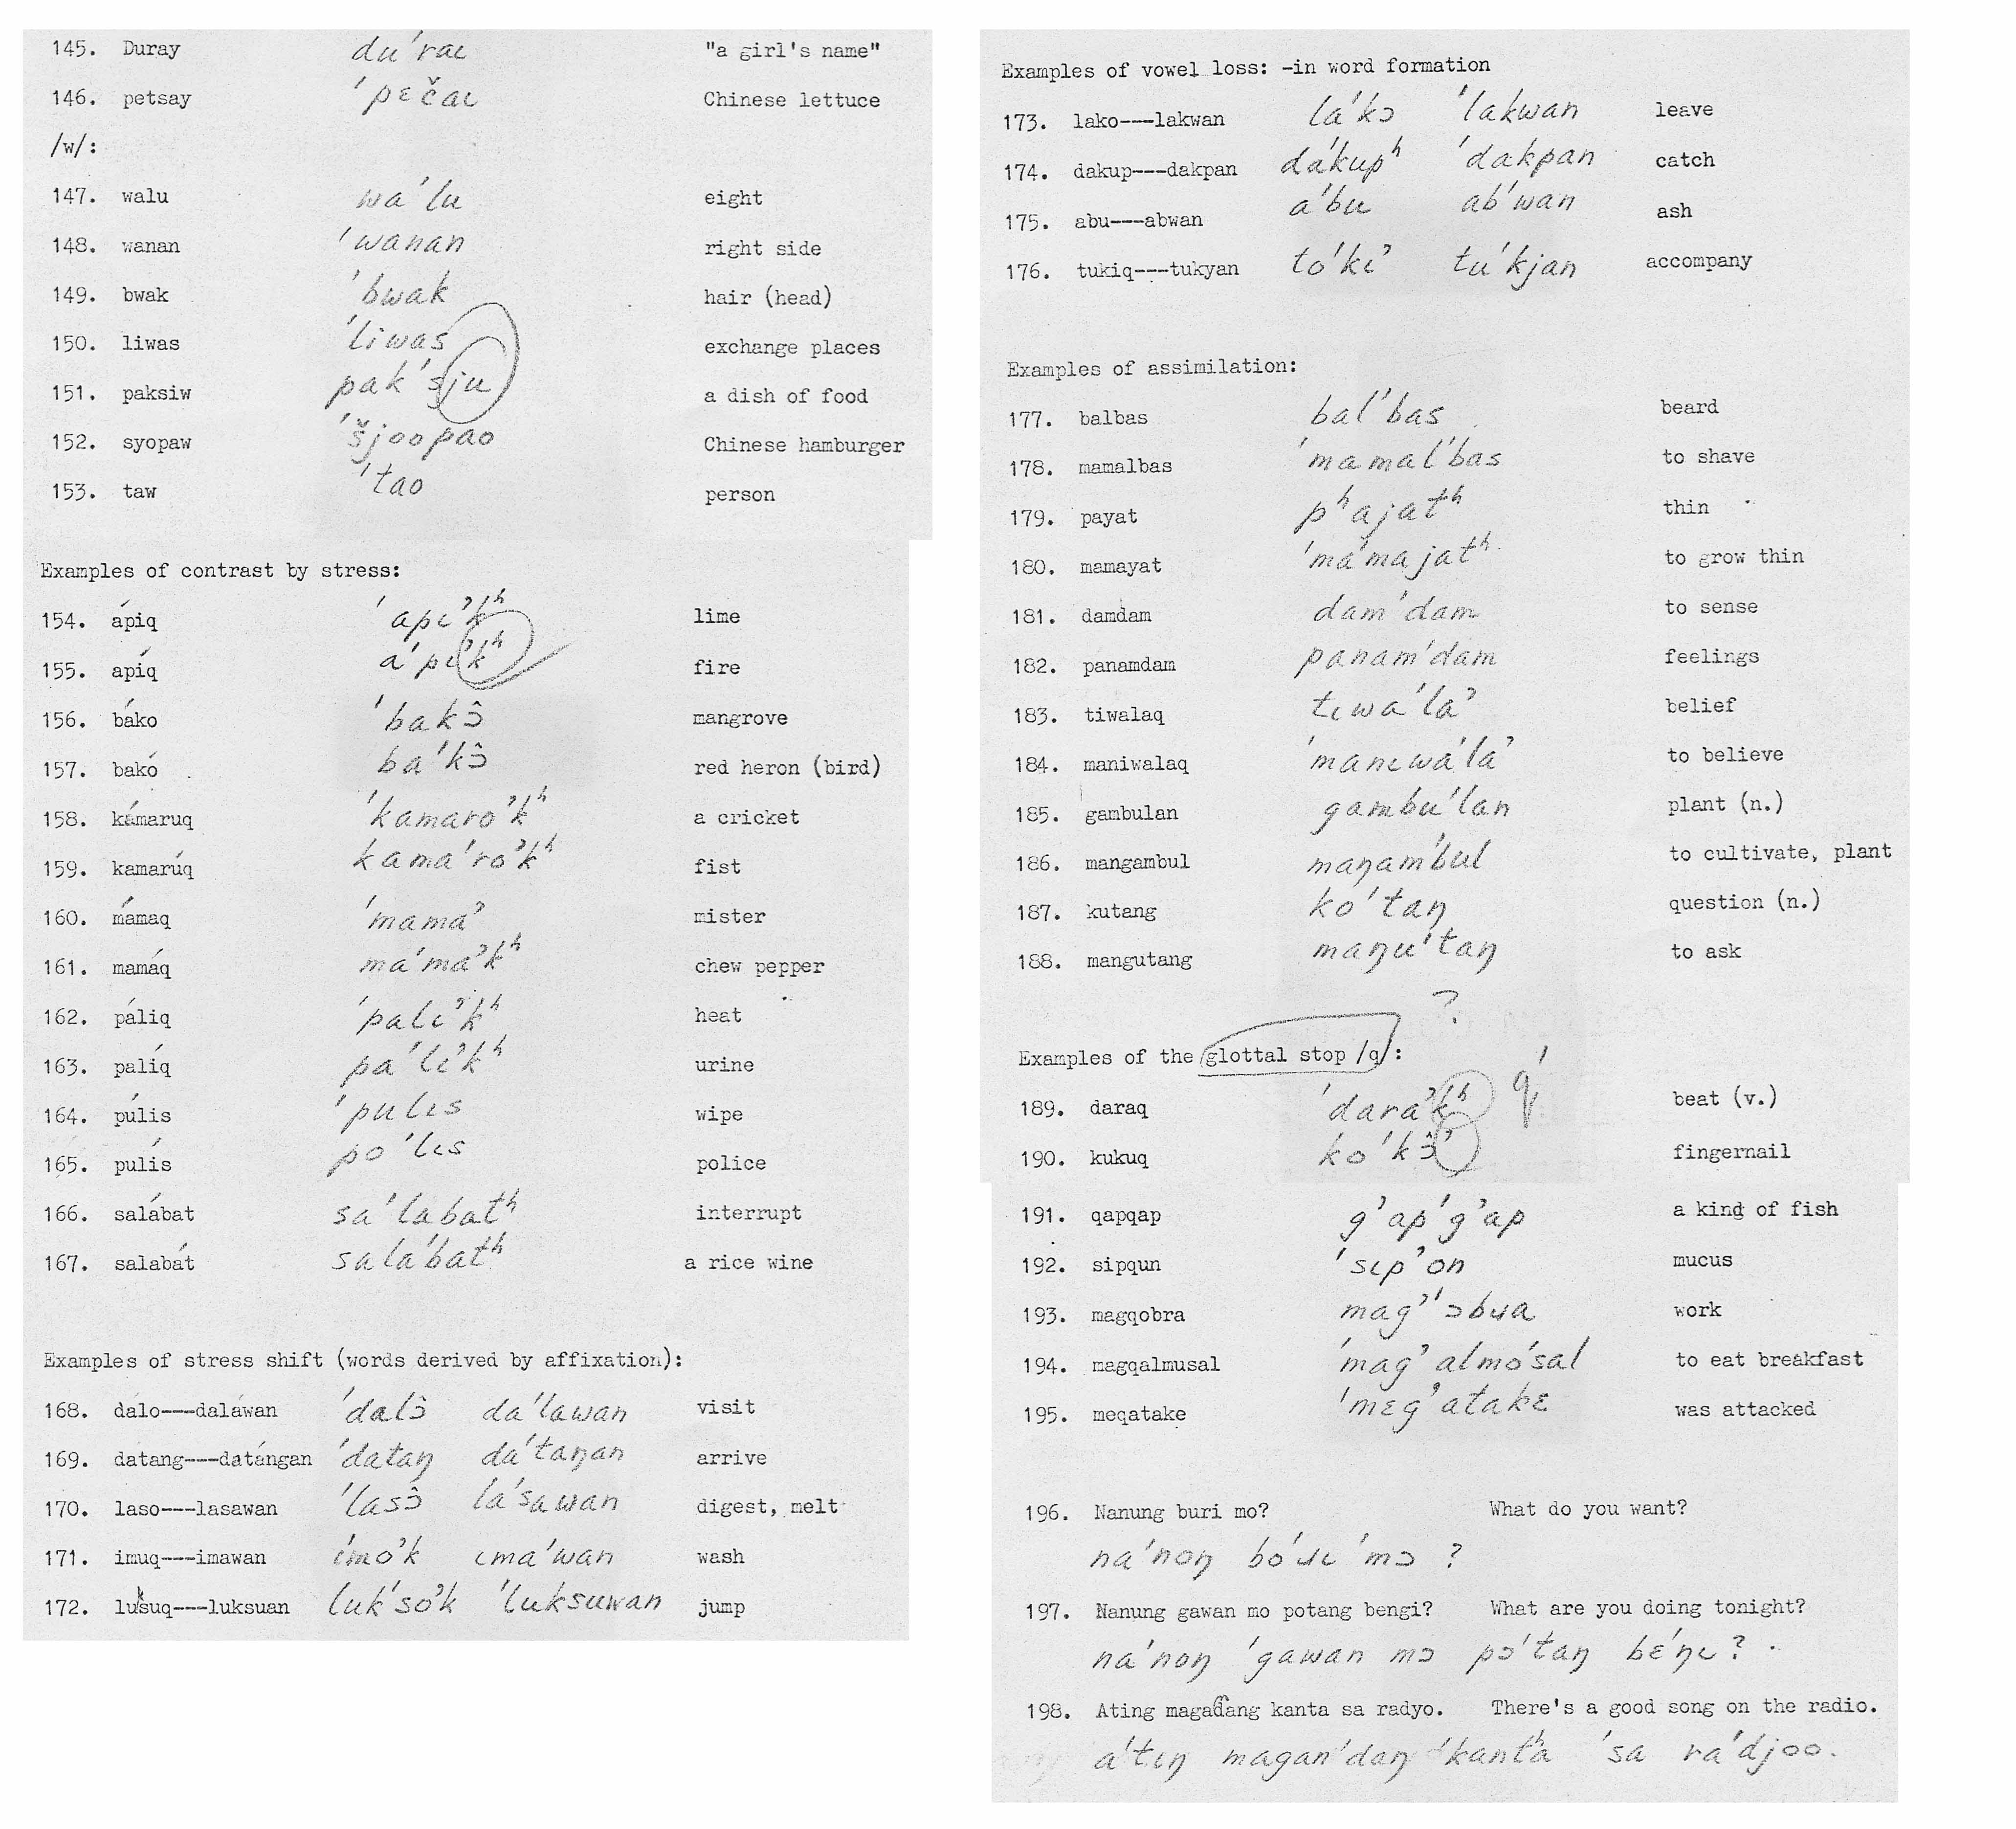 145. Duray du'raɩ "a girl's name"
146. petsay 'pɛčaɩ Chinese lettuce
/w/:
147. walu wa'lu eight
148. wanan 'wanan right side
149. bwak 'bwak hair (head)
150. liwas 'liwas exchange places
151. paksiw pak'sju a dish of food
152. syopaw 'šjoopao Chinese hamburger
153. taw 'tao person
Examples of contrast by stress:
154. ápiq 'apɩˀkʰ lime
155. apíq a'pɩˀkʰ fire
156. báko 'bakɔ̂ mangrove
157. bakó ba'kɔ̂ red heron (bird)
158. kámaruq 'kamaroˀkʰ a cricket
159. kamarúq kama'roˀkʰ fist
160. mámaq 'mamaˀ mister
161. mamáq ma'maˀkʰ chew pepper
162. páliq 'palɩˀkʰ heat
163. palíq pa'lɩˀkʰ urine
164. púlis 'pulɩs wipe
165. pulís po'lɩs police
166. salábat sa'labatʰ interrupt
167. salabát sala'batʰ a rice wine
Examples of stress shift (words derived by affixation):
168. dálo---daláwan 'dalɔ̂ da'lawan visit
169. datang---datángan 'dataŋ da'taŋan arrive
170. laso---lasawan 'lasɔ̂ la'sawan digest, melt
171. imuq---imawan 'ɩmoˀk ɩma'wan wash
172. luksuq---luksuan luk'soˀk 'luksuwan jump
Examples of vowel loss: -in word formation
173. lako---lakwan la'kɔ 'lakwan leave
174. dakup---dakpan da'kupʰ 'dakpan catch
175. abu---abwan a'bu ab'wan ash
176. tukiq---tukyan to'kɩˀ tu'kjan accompany
Examples of assimilation:
177. balbas bal'bas beard
178. mamalbas 'mamal'bas to shave
179. payat pʰajatʰ thin
180. mamayat 'ma'majatʰ to grow thin
181. damdam dam'dam to sense
182. panamdam panam'dam feelings
183. tiwalaq tɩwa'laˀ belief
184. maniwalaq 'manɩwa'laˀ to believe
185. gambulan gambu'lan plant (n.)
186. mangambul maŋam'bul to cultivate, plant
187. kutang ko'taŋ question (n.)
188. mangutang maŋu'taŋ to ask
?
Examples of the glottal stop /q/:
189. daraq 'daraˀkʰ q' beat (v.)
190. kukuq ko'kɔ̂ˀ fingernail
191. qapqap gˀap'gˀap a kind of fish
192. sipqun 'sɩpˀon mucus
193. magqobra magˀ'ɔbɹa work
194. magqalmusal 'magˀalmo'sal to eat breakfast
195. meqatake 'mɛgˀatakɛ was attacked
196. Nanung buri mo? What do you want?
na'noŋ bo'ɹɩ 'mɔ ?
197. Nanung gawan mo potang bengi? What are you doing tonight?
na'noŋ 'gawan mɔ pɔ'taŋ bɛ'ŋɩ?
198. Ating magandang kanta sa radyo. There's a good song on the radio.
a'tɩŋ magan'daŋ 'kantʰa 'sa ra'djoo.